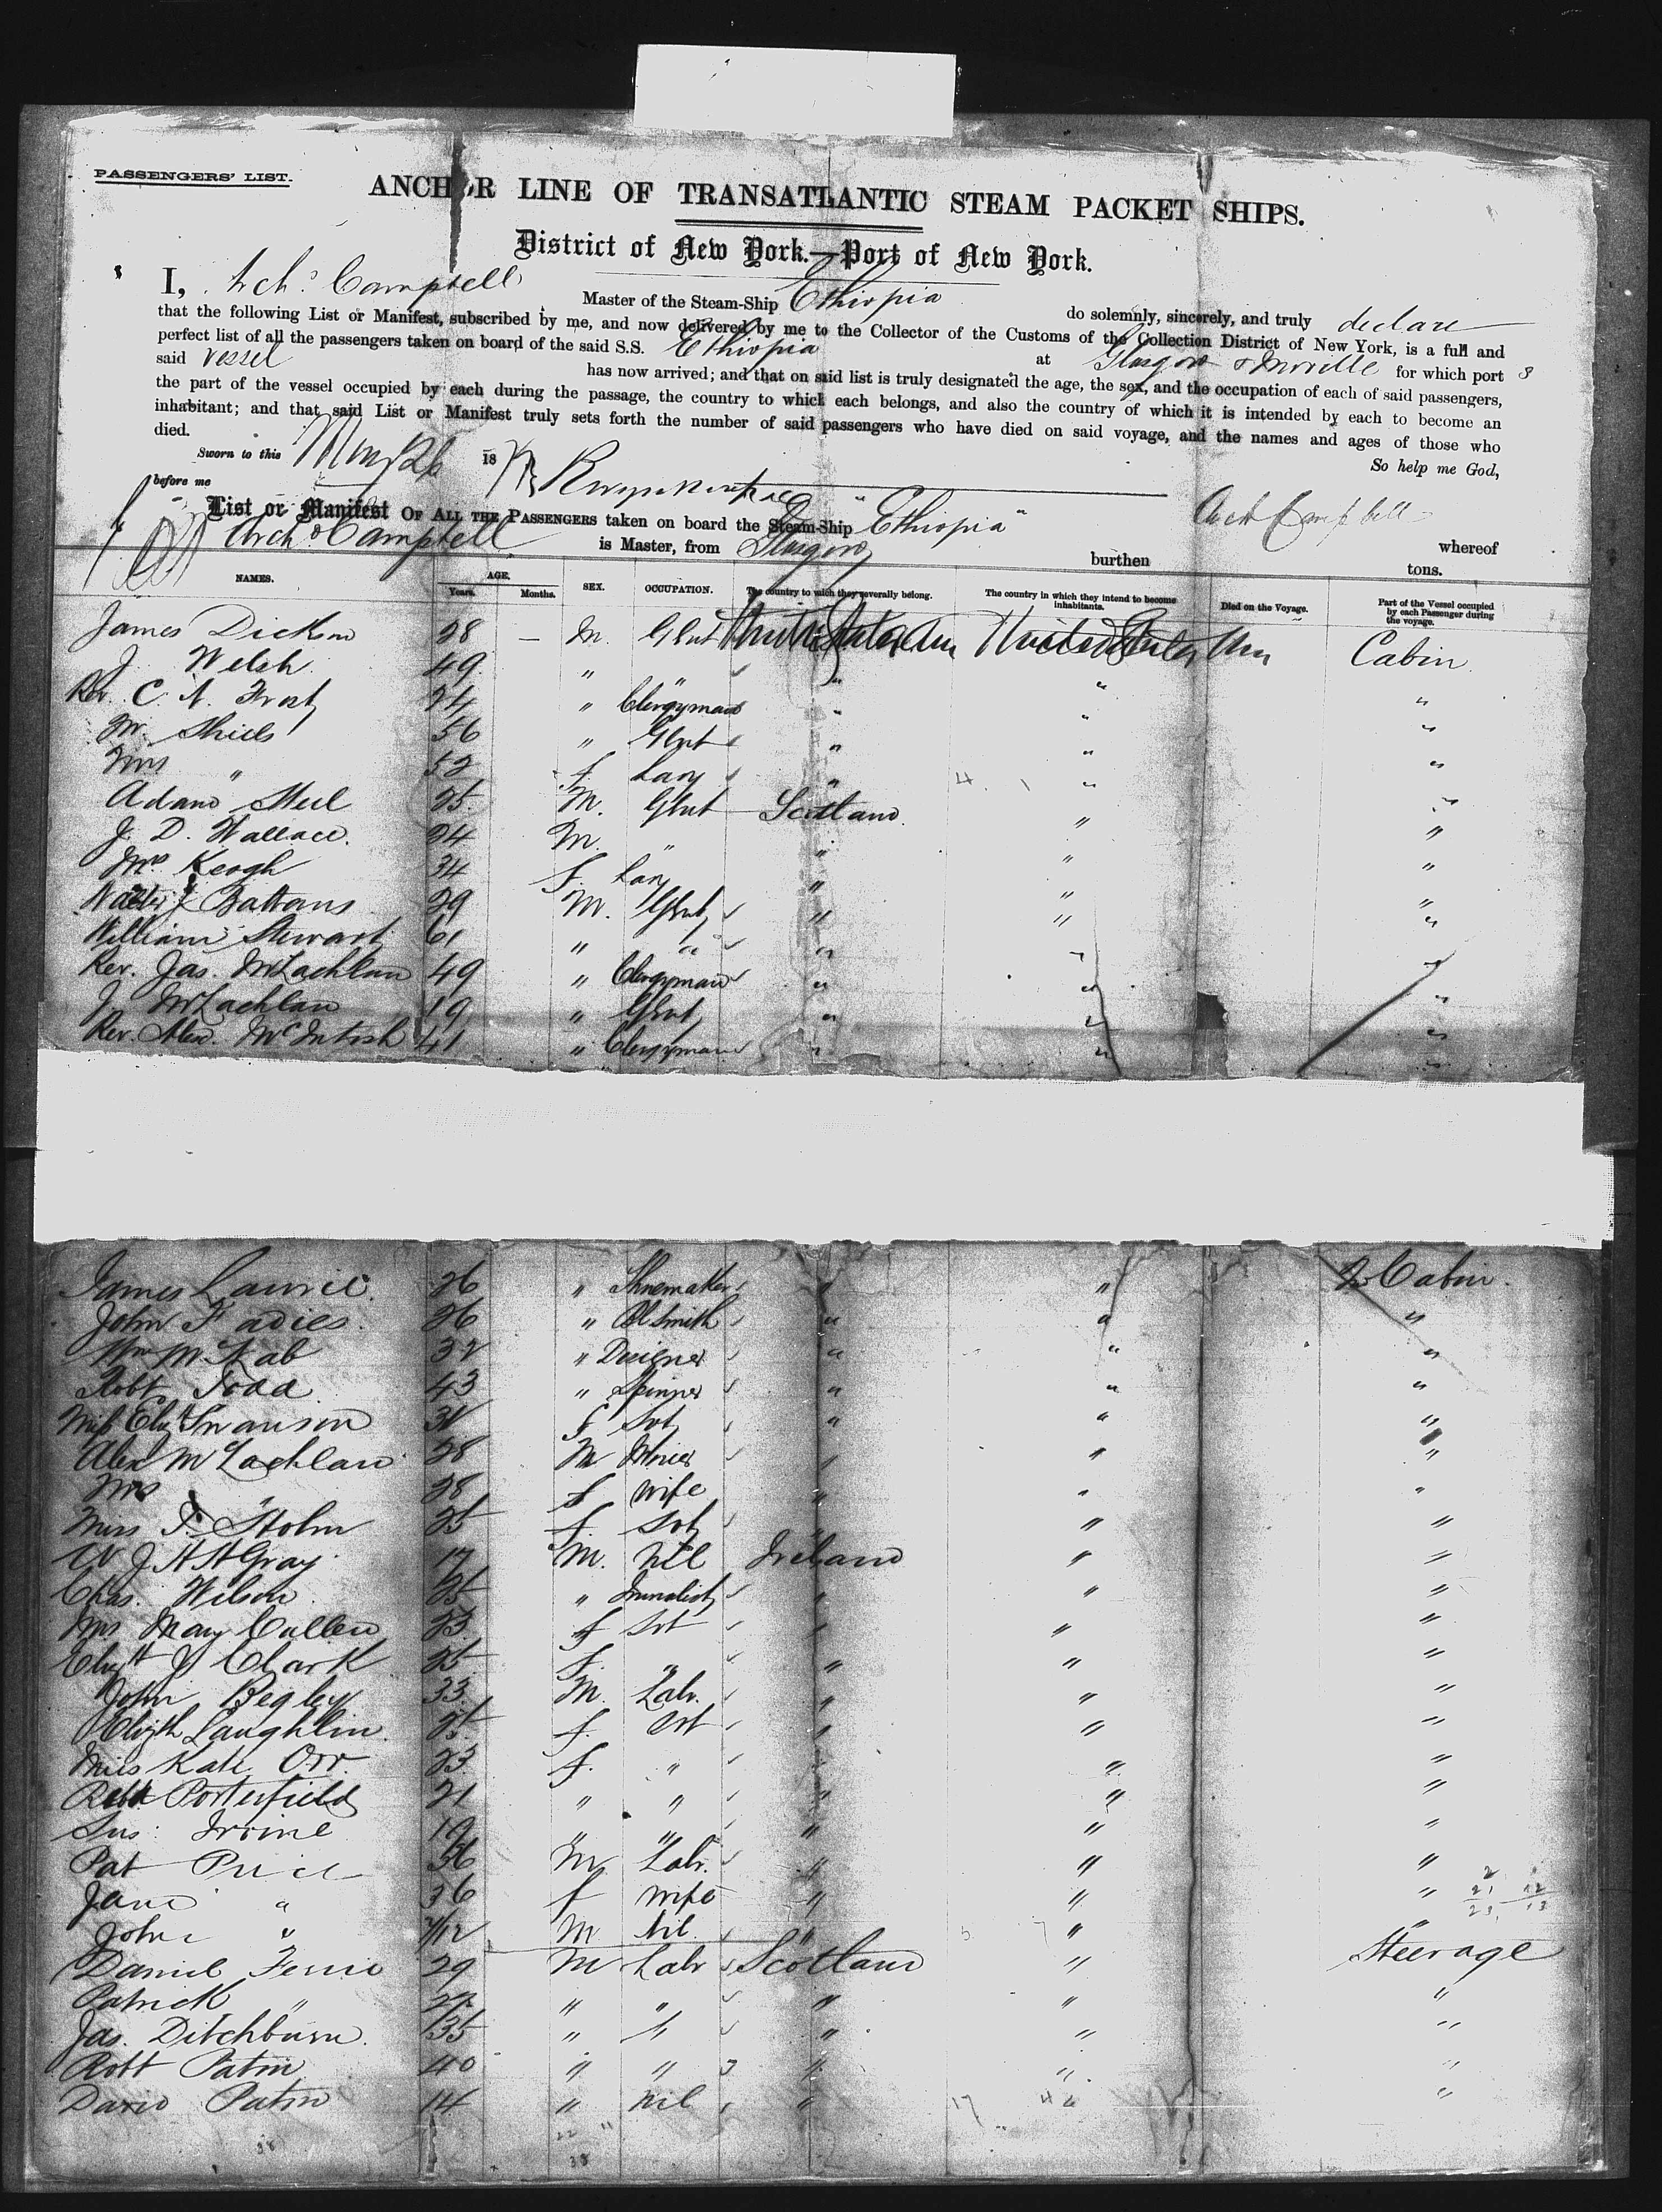 PASSENGERS' LIST.
ANCHOR LINE OF TRANSATLANTIC STEAM PACKET SHIPS.
District of New York.—Port of New York.
I, Archd. Campbell Master of the Steam-Ship Ethiopia do solemnly, sincerely, and truly declare
that the following List or Manifest, subscribed by me, and now delivered by me to the Collector of the Customs of the Collection District of New York, is a full and
perfect list of all the passengers taken on board of the said S.S. Ethiopia at Glasgow & Moville for which port
said vessel has now arrived; and that on said list is truly designated the age, the sex, and the occupation of each of said passengers,
the part of the vessel occupied by each during the passage, the country to which each belongs, and also the country of which it is intended by each to become an
inhabitant; and that said List or Manifest truly sets forth the number of said passengers who have died on said voyage, and the names and ages of those who
died.
So help me God,
Sworn to this 18
before me
Arch Campbell
List or Manifest OF ALL THE PASSENGERS taken on board the Steam-Ship "Ethiopia" whereof
Archd Campbell is Master, from Glasgow burthen tons.
NAMES. AGE. Years. Months. SEX. OCCUPATION. The country to which they severally belong. The country in which they intend to become inhabitants. Died on the Voyage. Part of the Vessel occupied by each Passenger during the voyage.
James Dickson 28 — M. Glnt United States Am United States Am Cabin
J. Welch 49 " " " " "
Rev. C. N. Frost 24 " Clergyman " " "
Mr. Shiels 56 " Glnt " " "
Mrs " 52 f. Lady " " "
Adam Steel 25 M. Glnt Scotland " "
J. D. Wallace. 24 M. " " " "
Mrs Keogh 34 f. Lady " " "
Walter J. Battans 29 M. Glnt " " "
William Stewart 61 " " " " "
Rev. Jas. McLachlan 49 " Clergyman " " "
J. McLachlan 19 " Glnt " " "
Rev. Alex. McIntosh 41 " Clergyman " " "
James Laurie 26 " Shoemaker " " 2 Cabin.
John F adies. 26 " Bl Smith " " "
Wm McNab 32 " Designer " " "
Robt Todd 43 " Spinner " " "
Miss Elizt Swanson 31 f Svt " " "
Alex McLachlan 28 M Joiner " " "
Mrs " 28 f Wife " " "
Miss J. Holm 25 f. Svt " " "
W J. H. H Gray 17 M. Nil Ireland " "
Chas. Wilson 25 " Journalist " " "
Mrs Mary Cullen 23 f Svt " " "
Elizth J Clark 25 f. " " " "
John Begley 33 M. Labr. " " "
Elizth Laughlin. 25 f. Svt " " "
Miss Kate Orr. 23 f. " " " "
Rebk Porterfield 21 " " " " "
Sus: Irvine 19 " " " " "
Pat Price 36 M Labr. " " "
Jane " 36 f Wife " " "
John " /12 M Nil " " "
Daniel Ferrie 29 M Labr Scotland " Steerage
Patrick " " " " " "
Jas. Ditchburn. 35 " " " " "
Robt Paton 40 " " " " "
David Paton 14 " Nil " " "